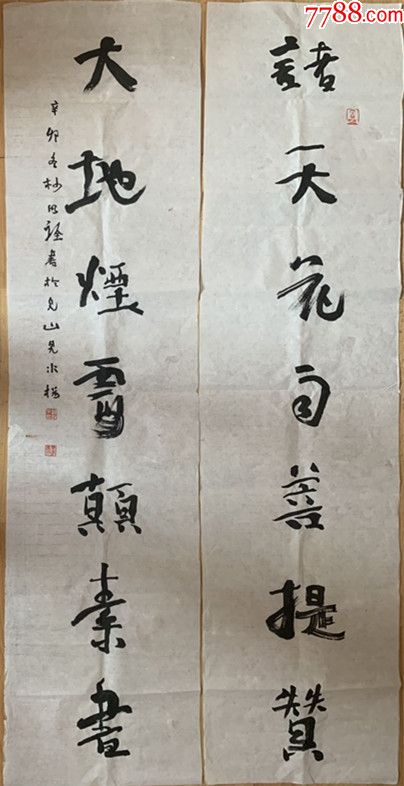 7788.com
諸天花雨菩提贊
大地煙雲顛素書
辛卯冬杪書於見山見水樓